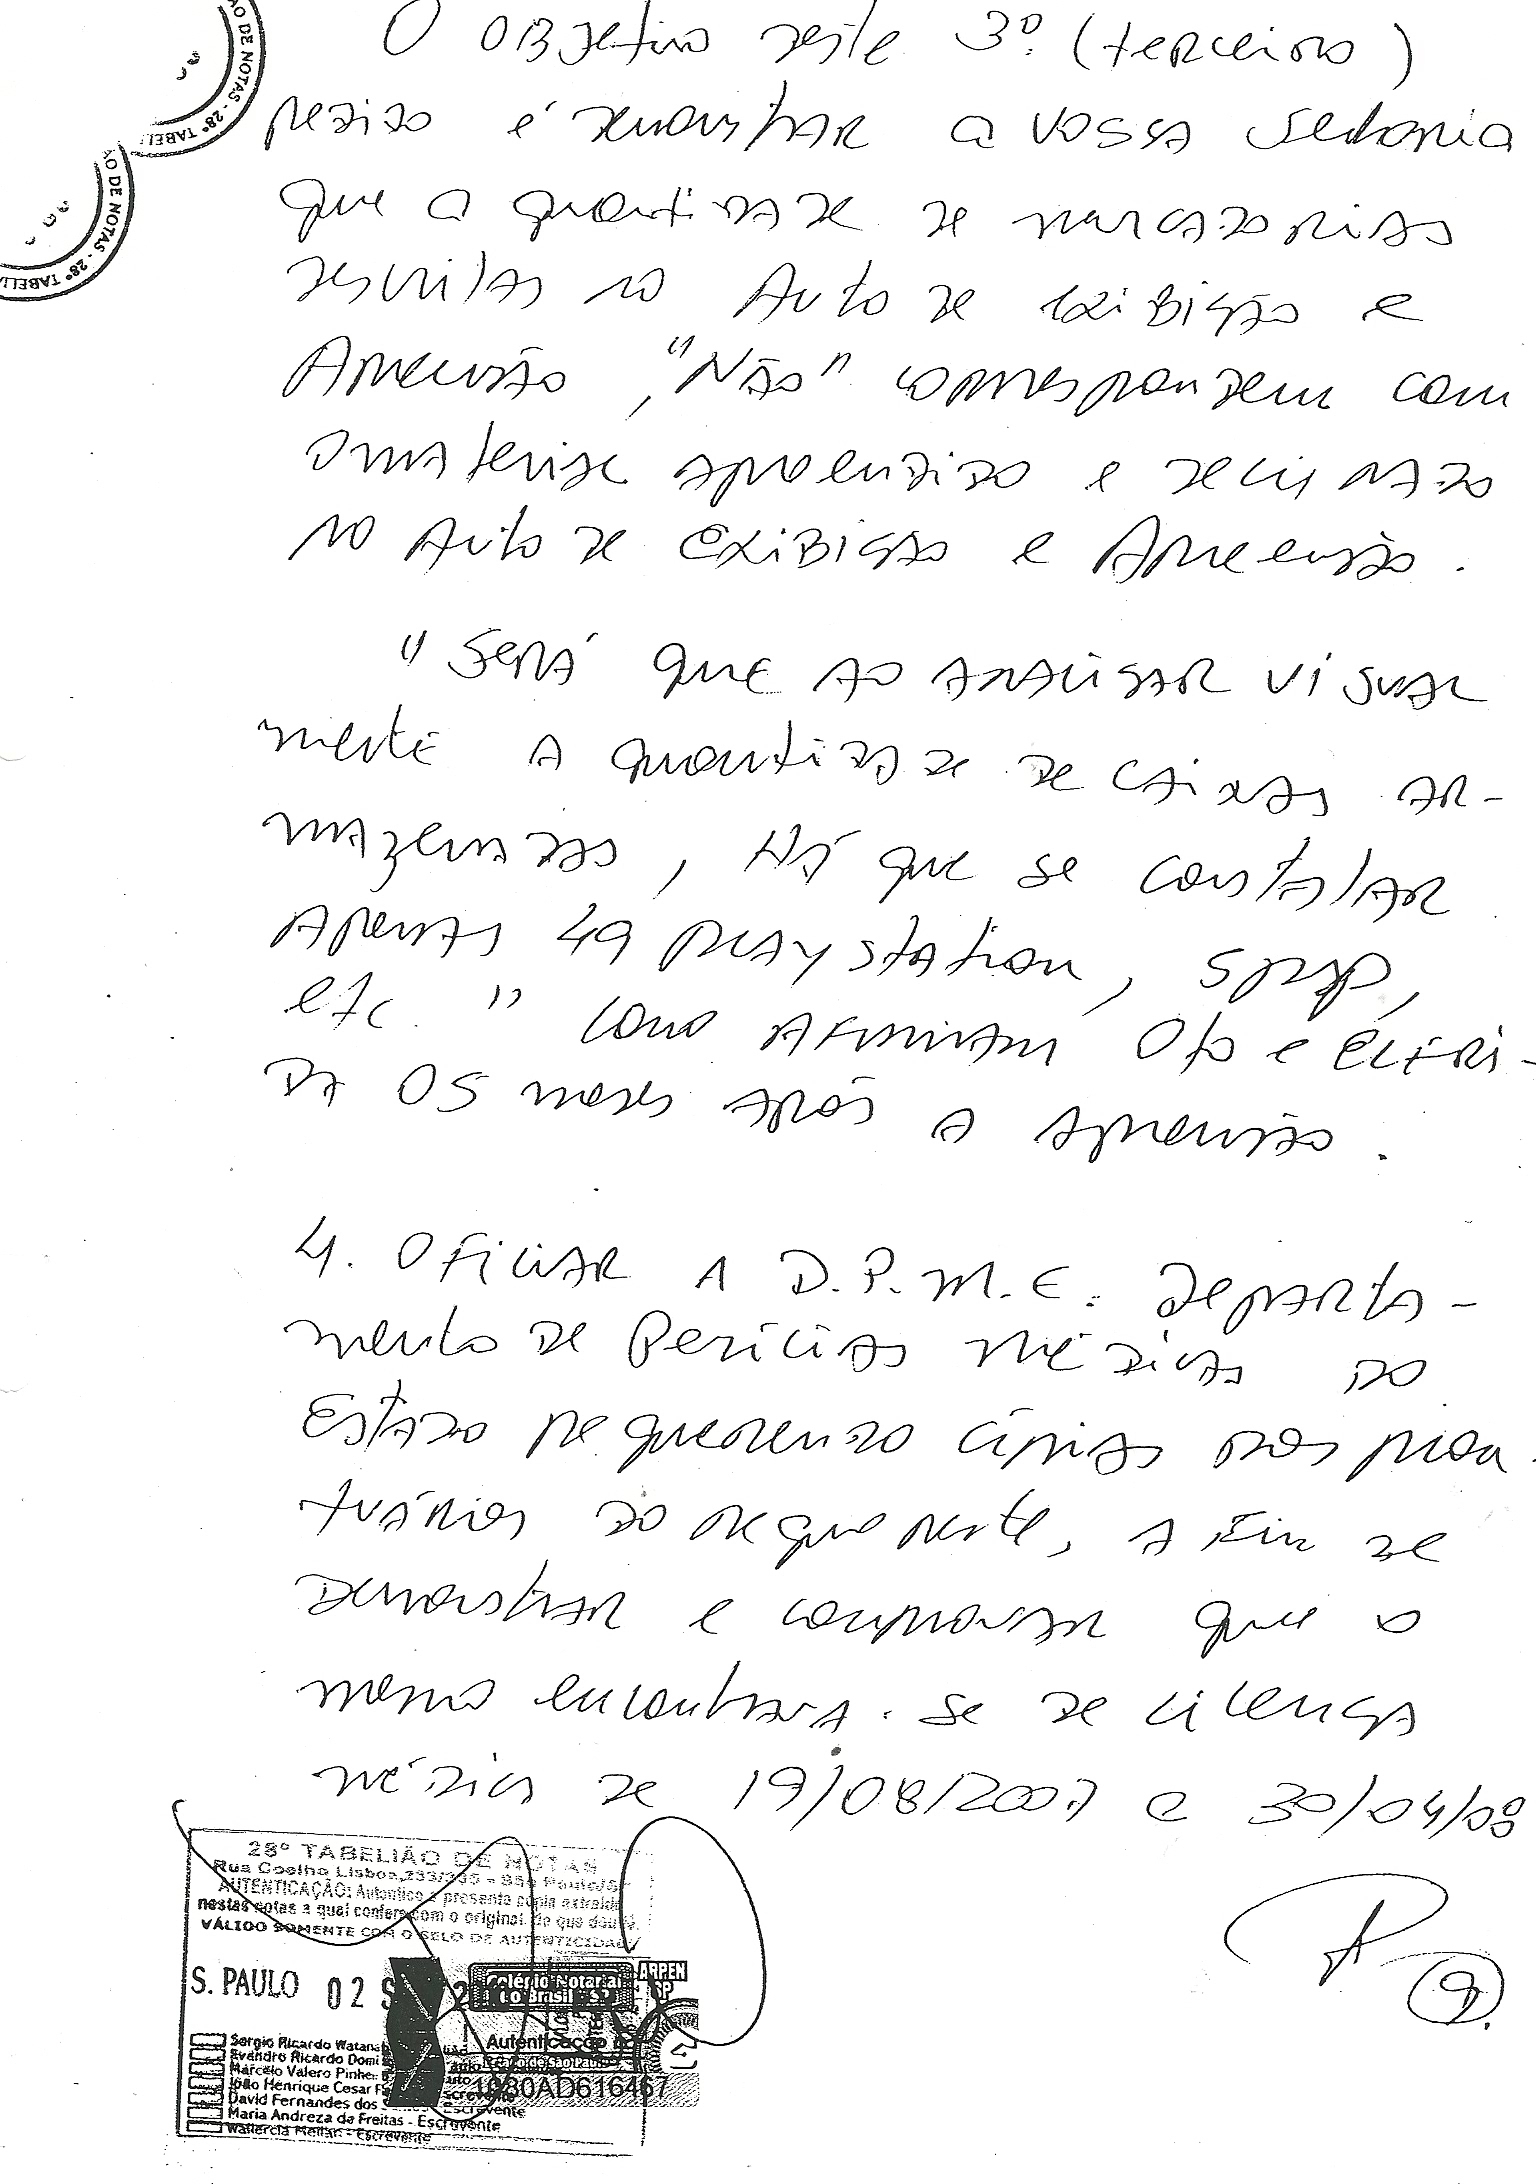 O objetivo deste 3º. (terceiro)
pedido é demonstrar a vossa senhoria
que a quantidade de mercadorias
descritas no Auto de Exibição e
Apreensão, "Não" correspondem com
o material apreendido e
no Auto de Exibição e Apreensão.
"Será que ao analisar visual
mente a quantidade de caixas ar-
mazenadas, há que se constatar
apenas 49 playstation,
etc." como afirmam
05 meses após a apreensão.
4. Oficiar a D.P.M.E. Departa-
mento de Perícias Médicas do
Estado requerendo cópias dos pron
tuários do requerente, a fim de
demonstrar e comprovar que o
mesmo encontrava-se de licença
médica de 19/08/2007 e 30/04/08
9.
ÃO DE NOTAS - 28º TABELI
ÃO DE NOTAS - 28º TABELIÃ
28º TABELIÃO DE NOTAS
Rua Coelho Lisboa, - São Paulo/SP
AUTENTICAÇÃO: Autentico a presente cópia extraída
nestas notas a qual confere com o original, do que dou fé.
VÁLIDO SOMENTE COM O SELO DE AUTENTICIDADE
S. PAULO 02 S
Colégio Notarial
do Brasil - SP
ARPEN
SP
Autenticação
1030AD616467
Sergio Ricardo Watanab
Evandro Ricardo Domi
Marcelo Valero Pinhe
João Henrique Cesar F
David Fernandes dos - Escrevente
Maria Andreza de Freitas - Escrevente
Wallercia Mellar - Escrevente